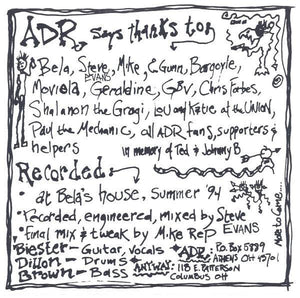 ADR says thanks to:
Bela, Steve, Mike, E. Gunn, Bargoyle,
EVANS
Moviola, Geraldine, GBV, Chris Forbes,
Shalanon the Gragi, Lou and Katie at the UNION,
Paul the Mechanic, all ADR fans, supporters &
helpers in memory of Ted & Johnny B
Recorded
• at Bela's house, Summer '94
• recorded, engineered, mixed by Steve
EVANS
• final mix & tweak by Mike Rep
Biester - Guitar, vocals
Dillon - Drums
Brown - Bass
ADR: P.O. Box 5899
ATHENS OH 45701
ANYWAY: 118 E. PATTERSON
COLUMBUS OH
More to Come...